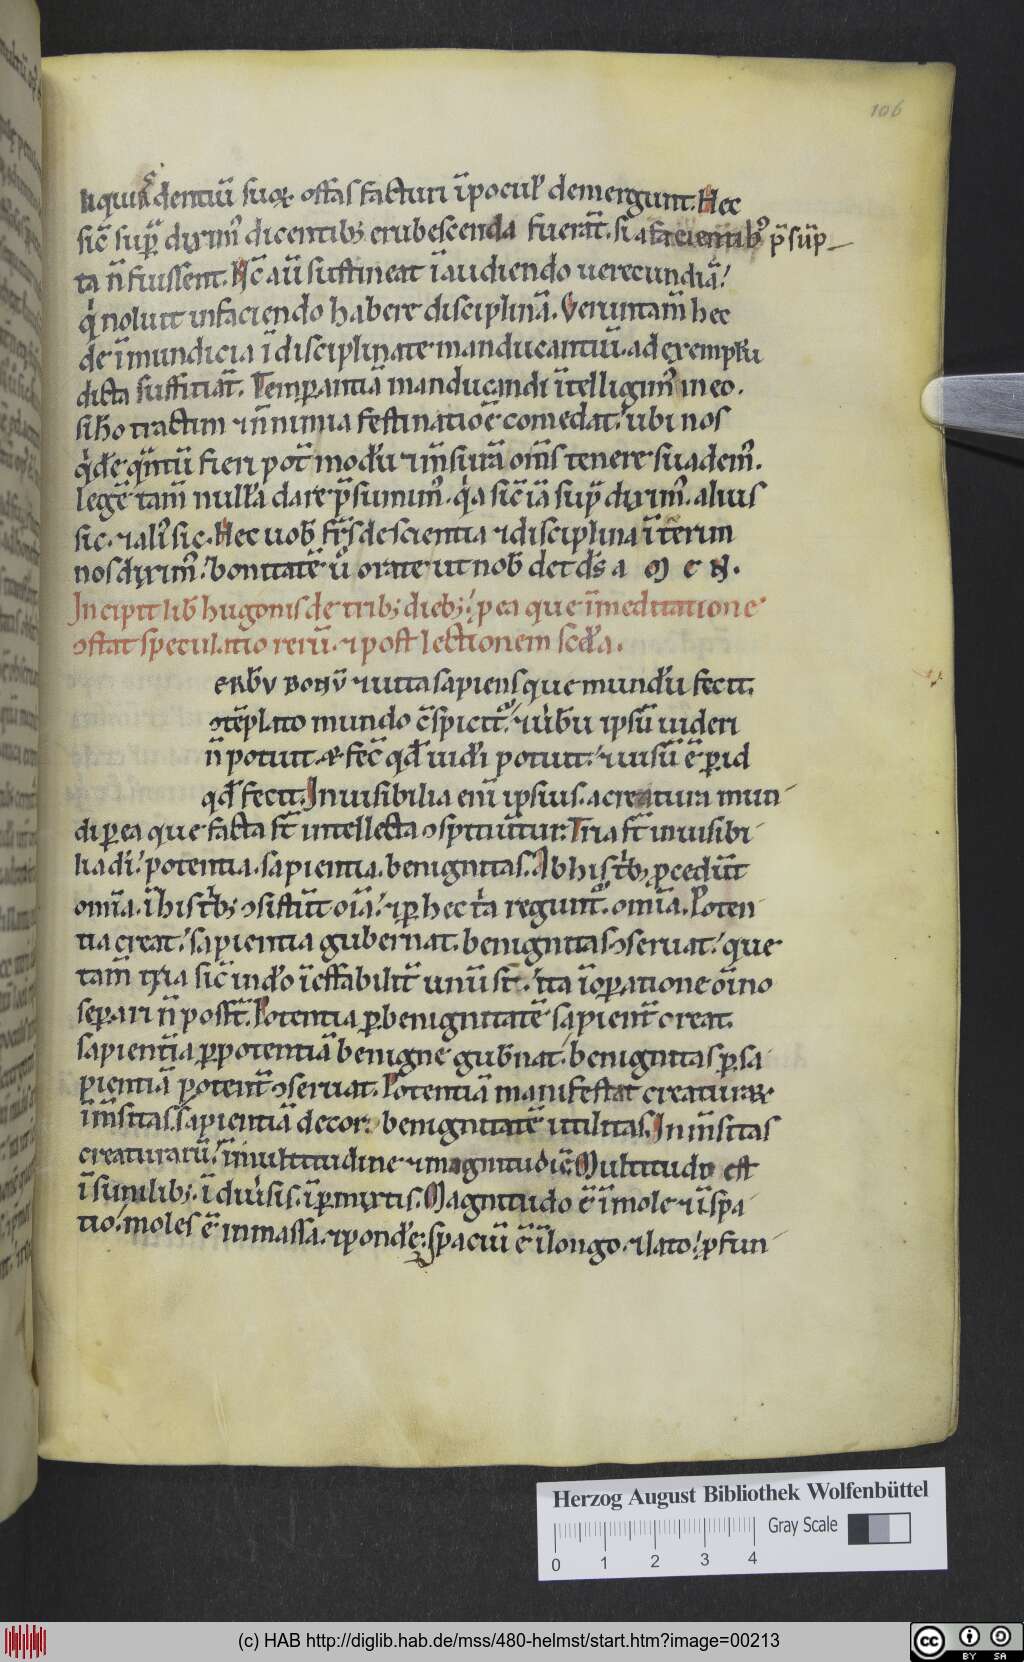 106
liquis dentiū suoꝝ offas facturi ī pocul' demergunt. Hec
sic̄ sup̄ dixim᷒ dicentib; erubescenda fuerāt. si a facientib᷒ p̄sūp
ta n̄ fuissent. Nc̄ aū sustineat ī audiendo uerecundiā!
q̇ noluit infaciendo habere disciplinā. Verunta᷒m̄ hec
de īmundicia ī disciplinate manducantiū. ad exemplu
dicta sufficiāt. Temꝑantiā manducandi ītelligim᷒ in eo.
tractim ⁊ n̄ nimia festinatiōe comedat. ubi nos
fieri pot̄ modū ⁊ m̄surā om̄s tenere suadem᷒.
legē tam̄ nullā dare p̄sumim᷒. q̇a sic̄ iā sup̄ dixim᷒. alius
sic. ⁊ ali᷒ sic. Hec uob̄ fr̄s de scientia ⁊ disciplina īterim
nos dixim᷒. bonitatē ū orate ut nob̄ det ds̄ a m e n.
Incipit lib̄ hugonis de trib; dieb;. p ea que ī meditatione
ꝯstat speculatio rerū. ⁊ post lectionem scd̄a.
erb̄v bonv̄ ⁊ uita sapiens que mundū fecit.
ꝯtēplato mundo ꝯ̄spicit᷒. ⁊ u̇bū ipsū uideri
n̄ potuit. ⁊ fec̄ qd̄ uid'i potuit. ⁊ uisū ē ꝑ id
qd̄ fecit. Inuisibilia eni̅ ipsius. a creatura mun
di ꝑ ea que facta st̄ intellecta ꝯspiciūtur. Tria st̄ inuisibi
lia di̅. potentia. sapientia. benignitas. Ab his tb᷒; ꝓcedūt
omīa. ī his tb᷒; ꝯsistūt oīa. ⁊ ꝑ hec tȧ regunt᷒. omīa. Poten
tia creat. sapientia gubernat. benignitas ꝯseruat. que
tam̄ tria sic̄ in dō īeffabilit̄ unū st̄. ita ī oꝑatione oīno
seꝑari n̄ posst̄. Potentia ꝑ benignitatē sapient̄ creat.
sapientia ꝑ potentiā benigne gub̄nat. benignitas ꝑ sa
pientiā potent̄ ꝯseruat. Potentiā manifestat creaturaꝝ
īm̄sitas. sapientiā decor. benignitatē utilitas. In m̄sitas
creaturarū. ī multitudine ⁊ magnitudiē. Multitudo est
ī similib;. ī diu̇sis. ī ꝑmixtis. Magnitudo ē ī mole ⁊ ī spa
tio. moles ē in massa. ⁊ pond'e. spaciū ē ī longo. ⁊ lato. ꝓfun
Herzog August Bibliothek Wolfenbüttel
Gray Scale
0 1 2 3 4
(c) HAB http://diglib.hab.de/mss/480-helmst/start.htm?image=00213
cc BY SA